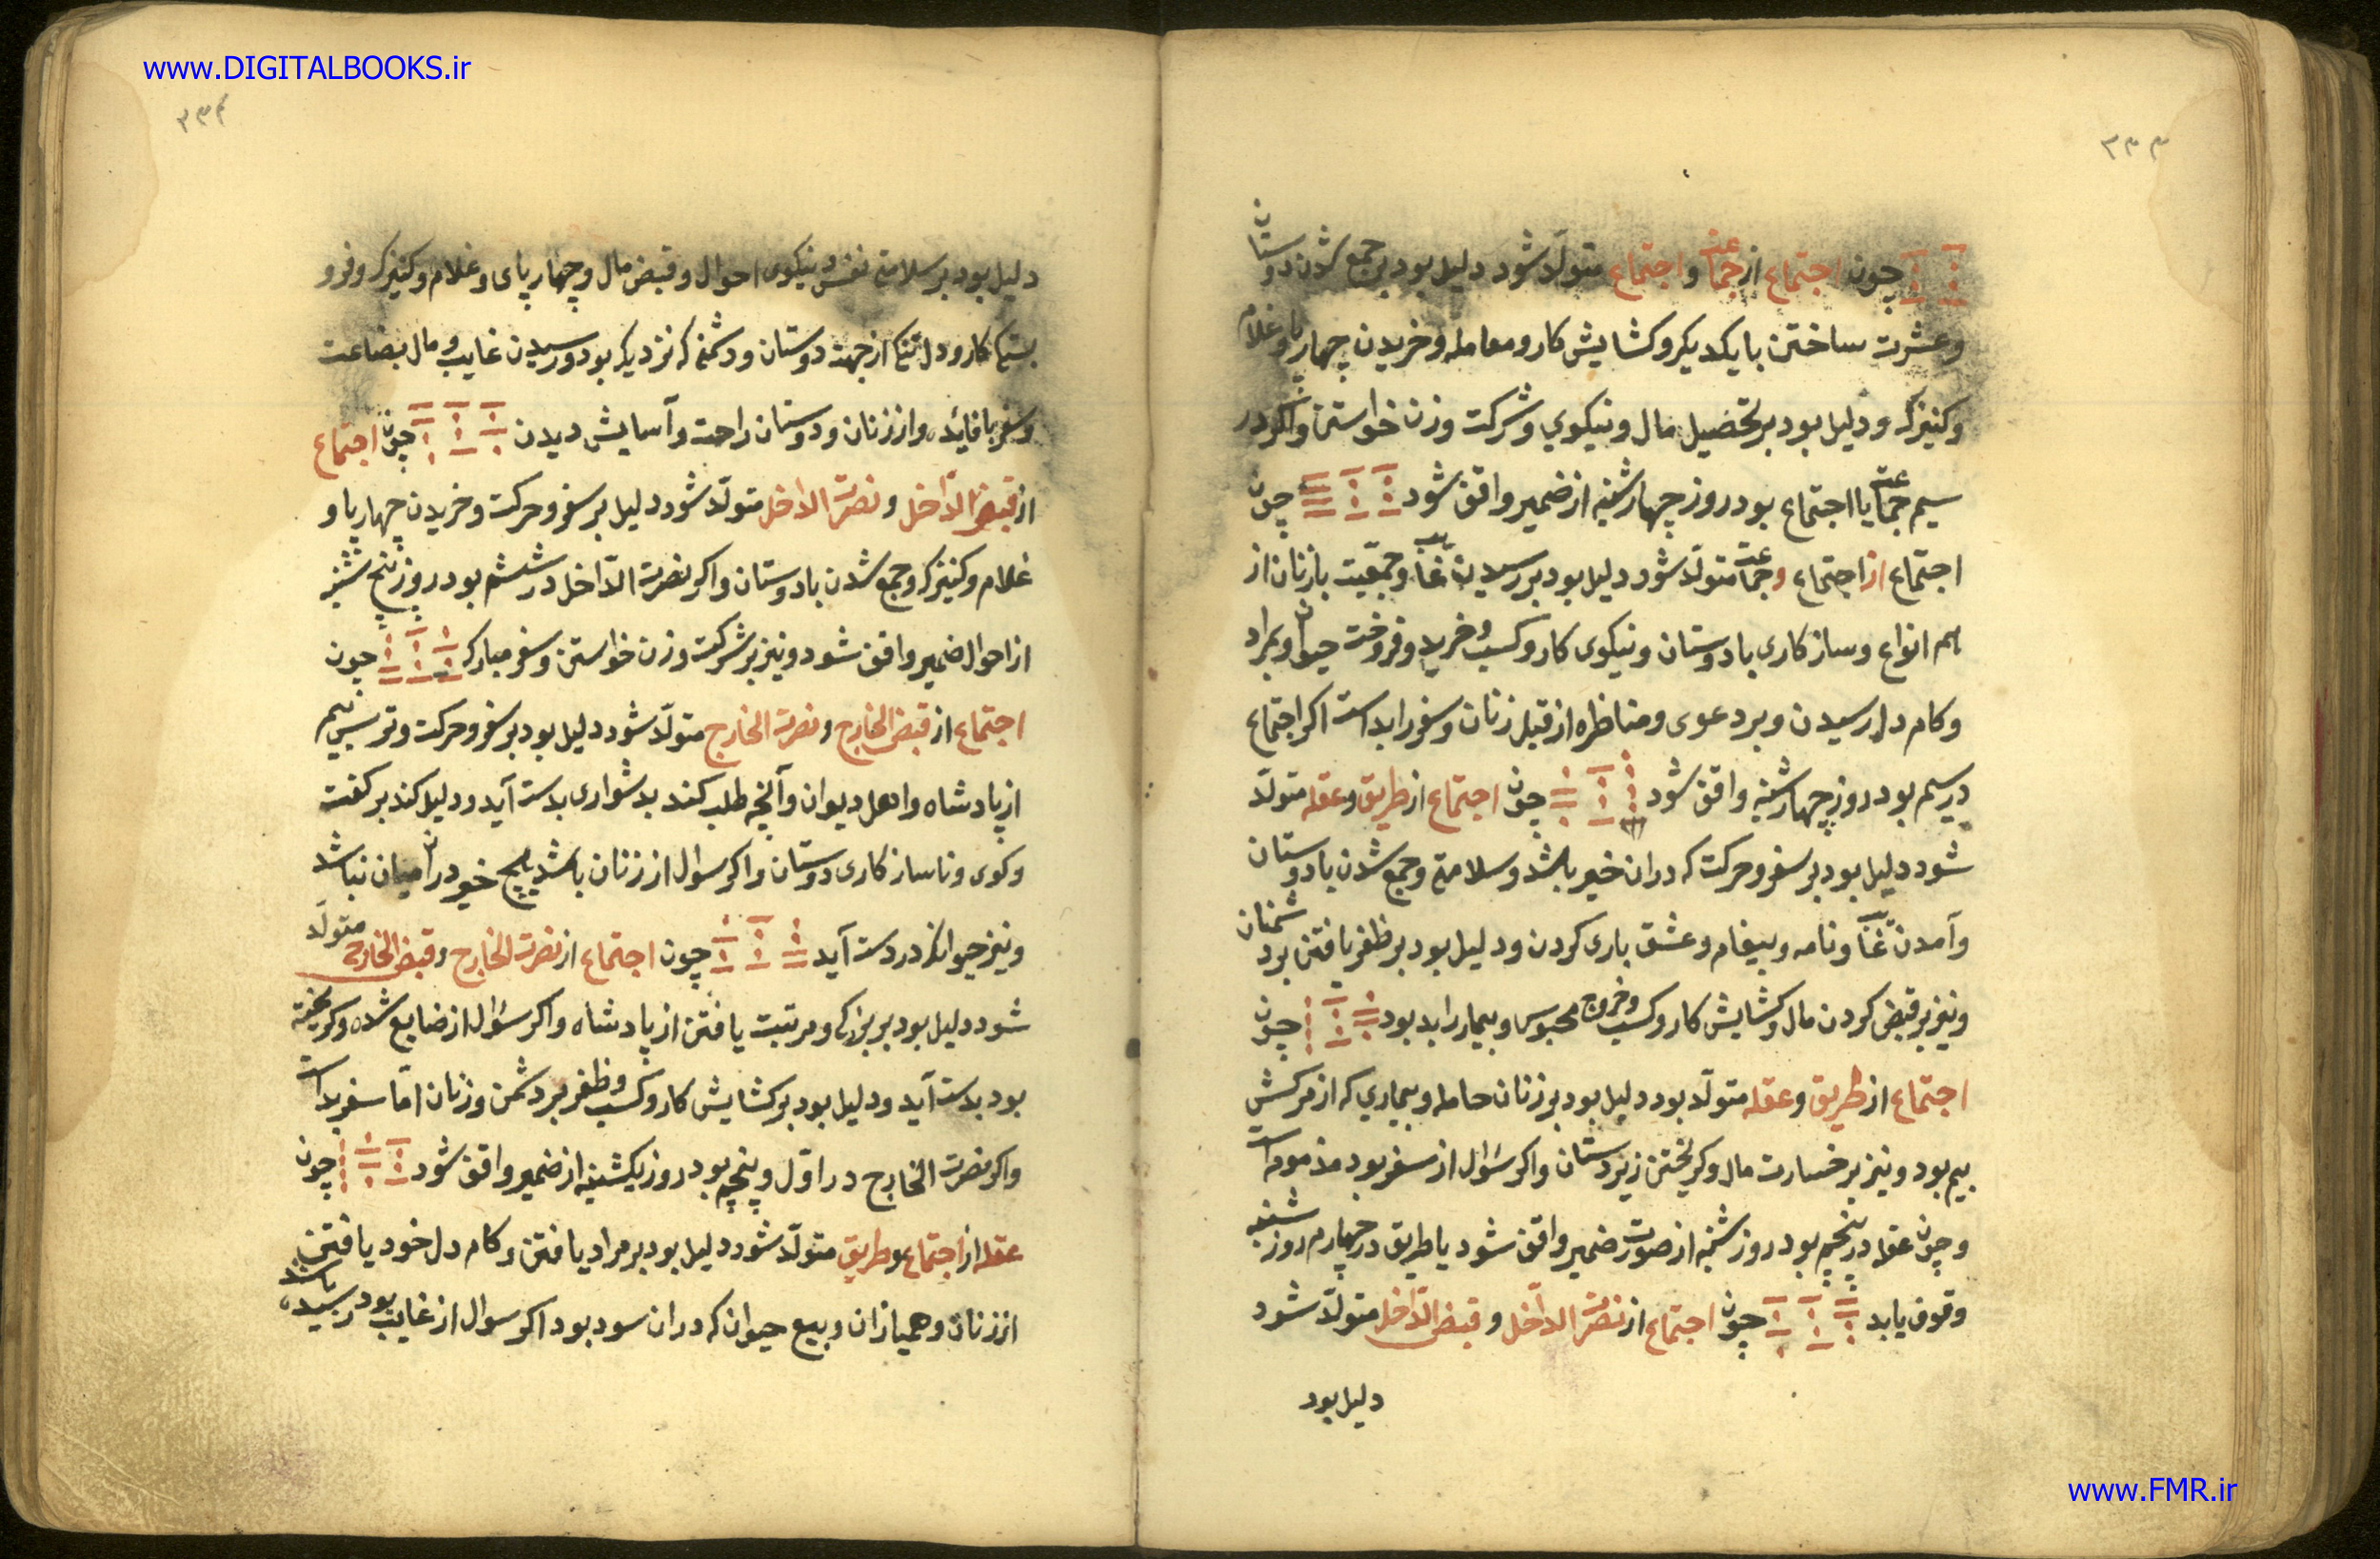 www.DIGITALBOOKS.ir
۳۳۳
چون اجتماع از جماعت و اجتماع متولّد شود دلیل بود بر جمع شدن دوستان
و عشرت ساختن با یکدیکر و کشایش کار و معامله و خریدن چهارپا و غلام
و کنیزک و دلیل بود بر تحصیل مال و نیکوي و شرکت و زن خواستن و اکر در
سیم جماعت یا اجتماع بود روز چهارشنبه از ضمیر واقف شود چون
اجتماع از اجتماع و جماعت متولّد شود دلیل بود بر رسیدن غایب و جمعّیت با زنان از
انواع و سازکاری با دوستان و نیکوی کار و کسب و خرید و فروخت حیوان و بمراد
و کام دل رسیدن و بر دعوی و مناظره از قبل زنان و سفر را بد است اکر اجتماع
در سیم بود روز چهارشنبه واقف شود چون اجتماع از طریق و عقله متولّد
شود دلیل بود بر سفر و حرکت که دران خیر باشد و سلامتی و جمع شدن با دوستان
و آمدن غایب و نامه و پیغام و عشق بازی کردن و دلیل بود بر ظفر یافتن بر دشمنان
و نیز بر قبض کردن مال و کشایش کار و کسب و خروج محبوس و بیمار را بد بود چون
اجتماع از طریق و عقله متولّد بود دلیل بود بر زنان حامله و بیماري که از مرکش
بیم بود و نیز بر خسارت مال و کریختن زیردستان و اکر سؤال از سفر بود مذموم است
و چون عقله در پنجم بود روز شنبه از صورت ضمیر واقف شود یا طریق در چهارم روز شنبه
وقوف یابد چون اجتماع از نصرت الدّاخل و قبض الدّاخل متولّد شود
دلیل بود
۳۳۴
دلیل بود بر سلامتی نفس و نیکوی احوال و قبض مال و چهارپای و غلام و کنیزک و فرو
بستکی کار و دل تنکی از جهت دوستان و دشمنی که نزدیک بود و رسیدن غایب و مال بضاعت
و سفر با فایده و از زنان و دوستان راحت و آسایش دیدن چون اجتماع
از قبض الدّاخل و نصرت الداخل متولّد شود دلیل بر سفر و حرکت و خریدن چهارپا و
غلام و کنیزک و جمع شدن با دوستان و اکر نصرت الدّاخل در ششم بود روز پنج شنبه
از احوال ضمیر واقف شود و نیز بر شرکت و زن خواستن و سفر مبارک چون
اجتماع از قبض الخارج و نصرت الخارج متولّد شود دلیل بود بر سفر و حرکت و ترس و بیم
از پادشاه و اهل دیوان و آنچه طلب کند بدشواری بدست آید و دلیل کند بر کفت
و کوی و ناسازکاری دوستان و اکر سوال از زنان باشد هیچ خیر در آن میان نباشد
و نیز حیوانکه در دست آید چون اجتماع از نصرت الخارج و قبض الخارج متولّد
شود دلیل بود بر بزرکی و مرتبت یافتن از پادشاه و اکر سؤال از ضایع شده و کریخته
بود بدست آید و دلیل بود بر کشایش کار و کسب و ظفر بر دشمن و زنان امّا سفر بد است
و اکر نصرت الخارج در اوّل و پنجم بود روز یکشنبه از ضمیر واقف شود چون
عقله از اجتماع و طریق متولّد شود دلیل بود بر مراد یافتن و کام دل خود یافتن
از زنان و همبازان و بیع حیوان که دران سود بود اکر سوال از غایب بود رسیده باشد
www.FMR.ir